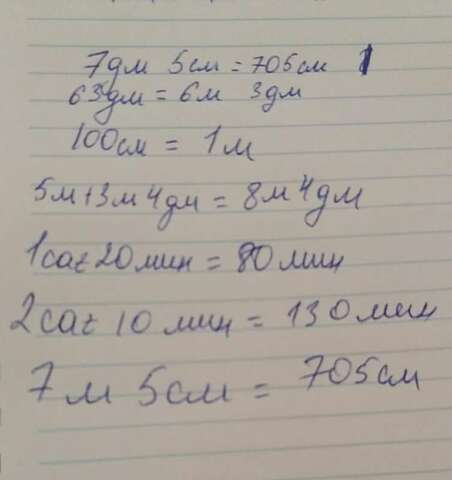 7дм 5см = 705см 1
63дм = 6м 3дм
100см = 1м
5м+3м 4дм = 8м 4дм
1саг 20мин = 80мин
2саг 10мин = 130мин
7м 5см = 705см